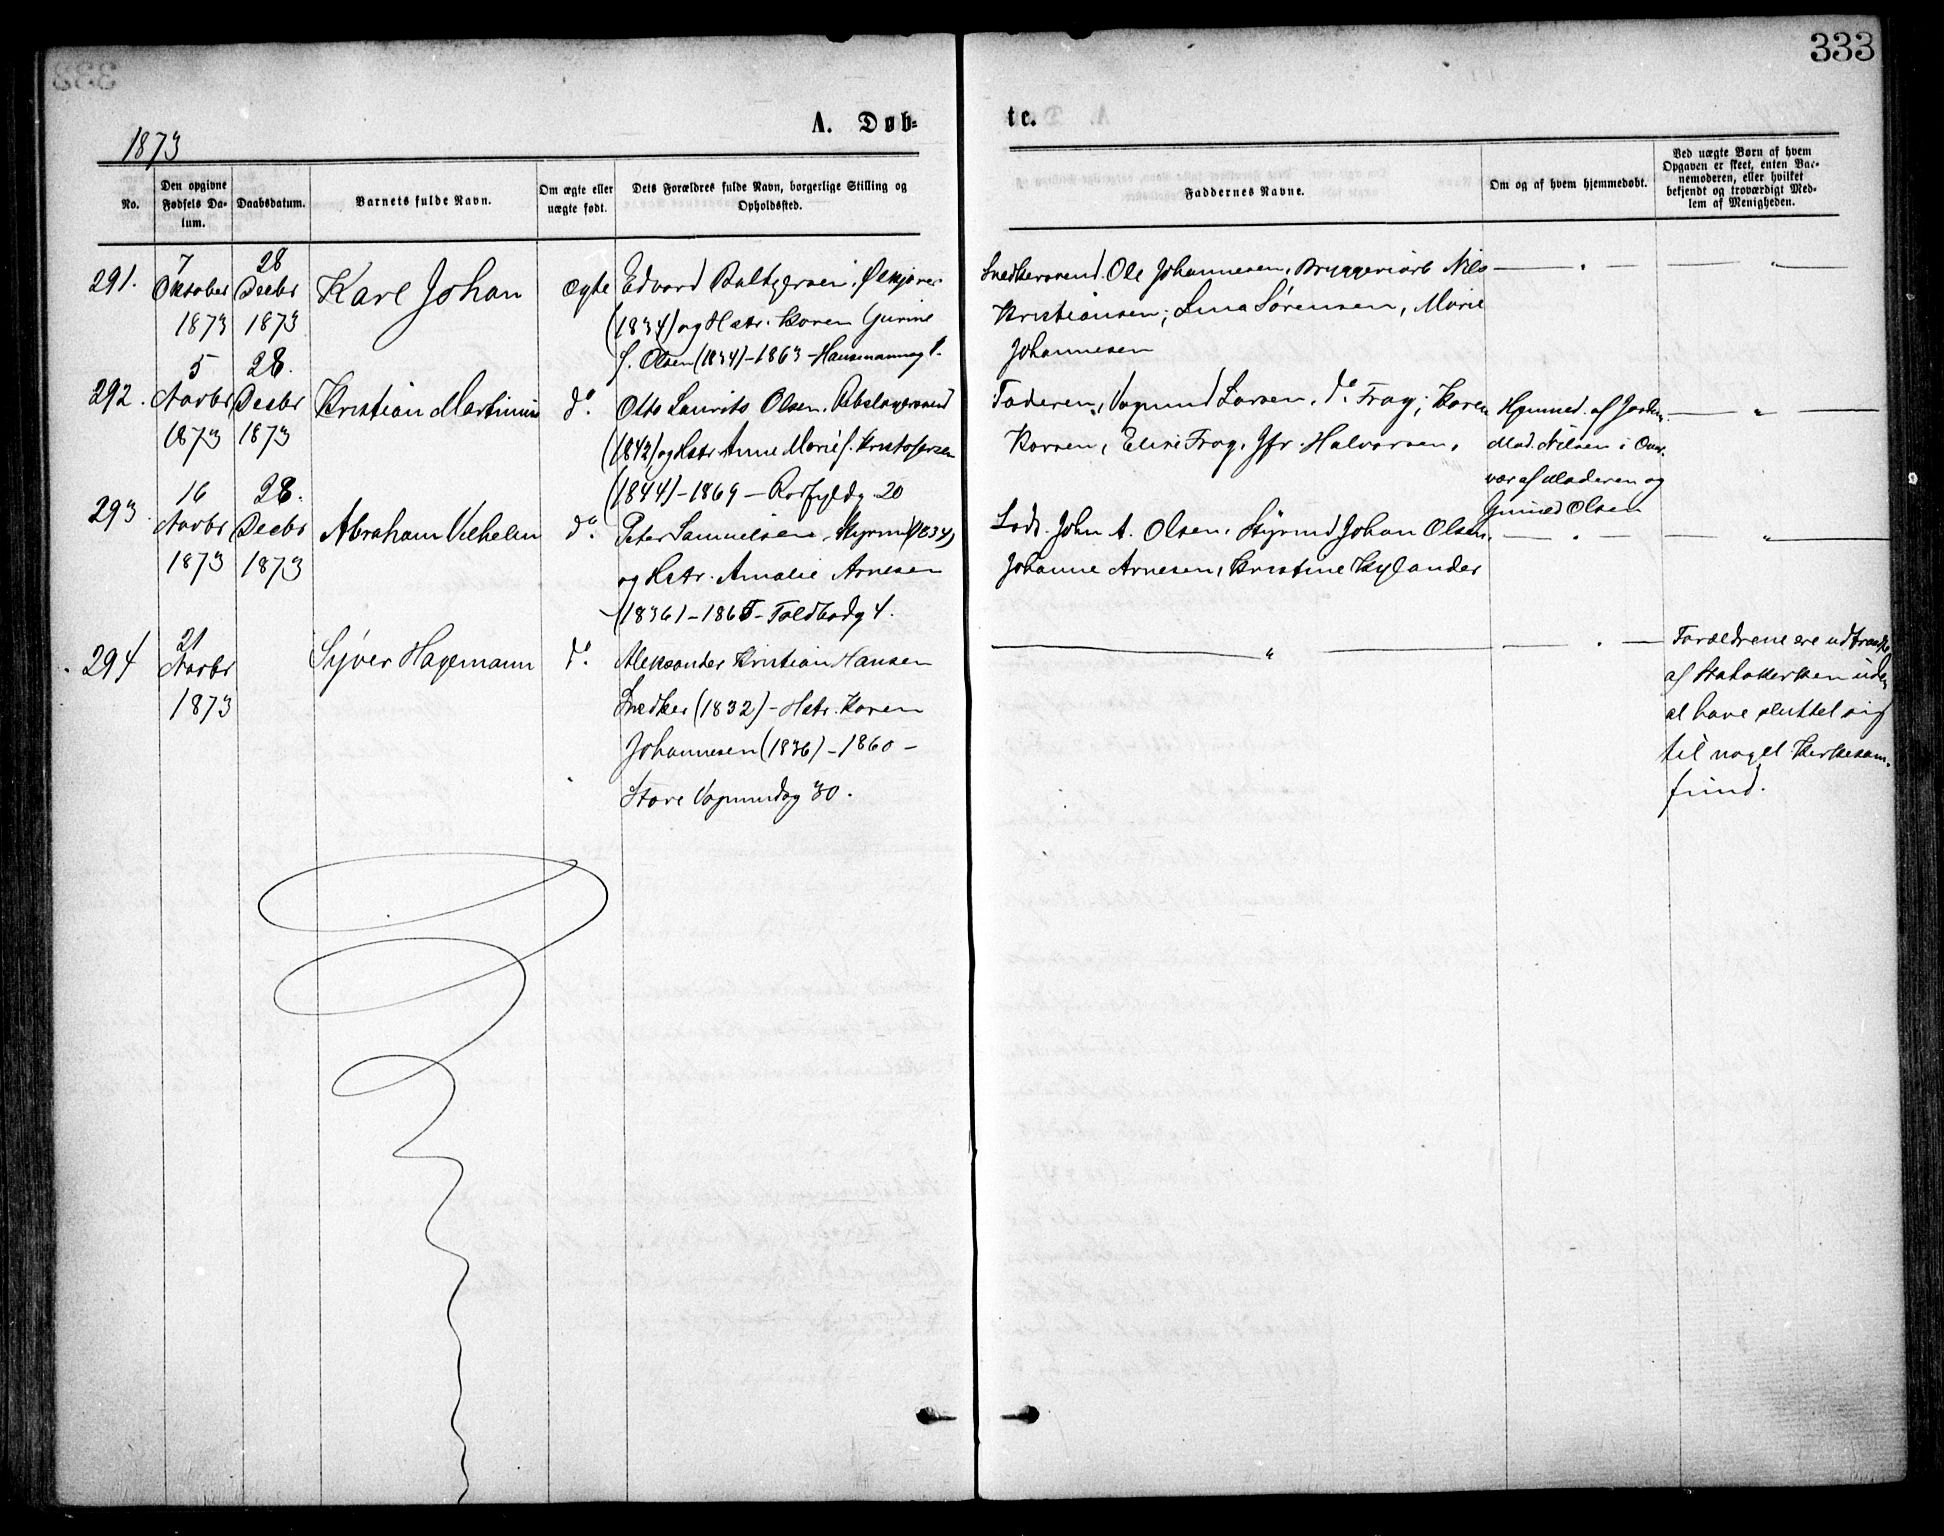 333
A. Døb-
te.
1873
No.
Den opgivne
Fødsels Da-
tum.
Daabsdatum.
Barnets fulde Navn.
Om ægte eller
uægte født.
Dets Forældres fulde Navn, borgerlige Stilling og
Opholdssted.
Faddernes Navne.
Om og af hvem hjemmedøbt.
Ved uægte Børn af hvem
Opgaven er skeet, enten Bar-
nemoderen, eller hvilket
bekjendt og troværdigt Med-
lem af Menigheden.
291.
7
Oktober
1873
28
Decbr
1873
Karl Johan
ægte
Edvard
(1834) og Hstr. Karen Gurine
f. Olsen (1834) - 1863 -
Snedkersvend. Ole Johannesen, Bryggeriarb Nils
Kristiansen; Lina Sørensen, Marie
Johannesen
292.
5
Novbr
1873
28.
Decbr
1873
Kristian Martinius
do.
Otto Laurits Olsen. Rebslagersvend
(1842) og Hstr Anne Marie f. Kristofersen
(1844) - 1869 - 20
Faderen, Vognmd Larsen, do. Frag; Karen
Elise Frag, Jfr. Halvorsen.
Hjemmed. af Jordm.
Mad. Nilsen i Over-
vær af Moderen og
Olsen
293.
16
Novbr
1873
28.
Decbr
1873
Abraham Vilhelm
do.
Peter Samuelsen, Styrmd (1834)
og Hstr. Amalie Arnesen
(1836) - 1865 - Toldbodg 4.
Lods. John A. Olsen, Styrmd Johan Olsen,
Johanne Arnesen, Kristine Kylander
294
21
Novbr
1873
Syver Hagemann
do.
Aleksander Kristian Hansen
Snedker (1832) - Hstr. Karen
Johannesen (1836) - 1860 -
Store Vognmdsg 30.
Forældrene ere udtraadte
af Statskirken uden
at have sluttet sig
til noget Kirkesam-
fund.